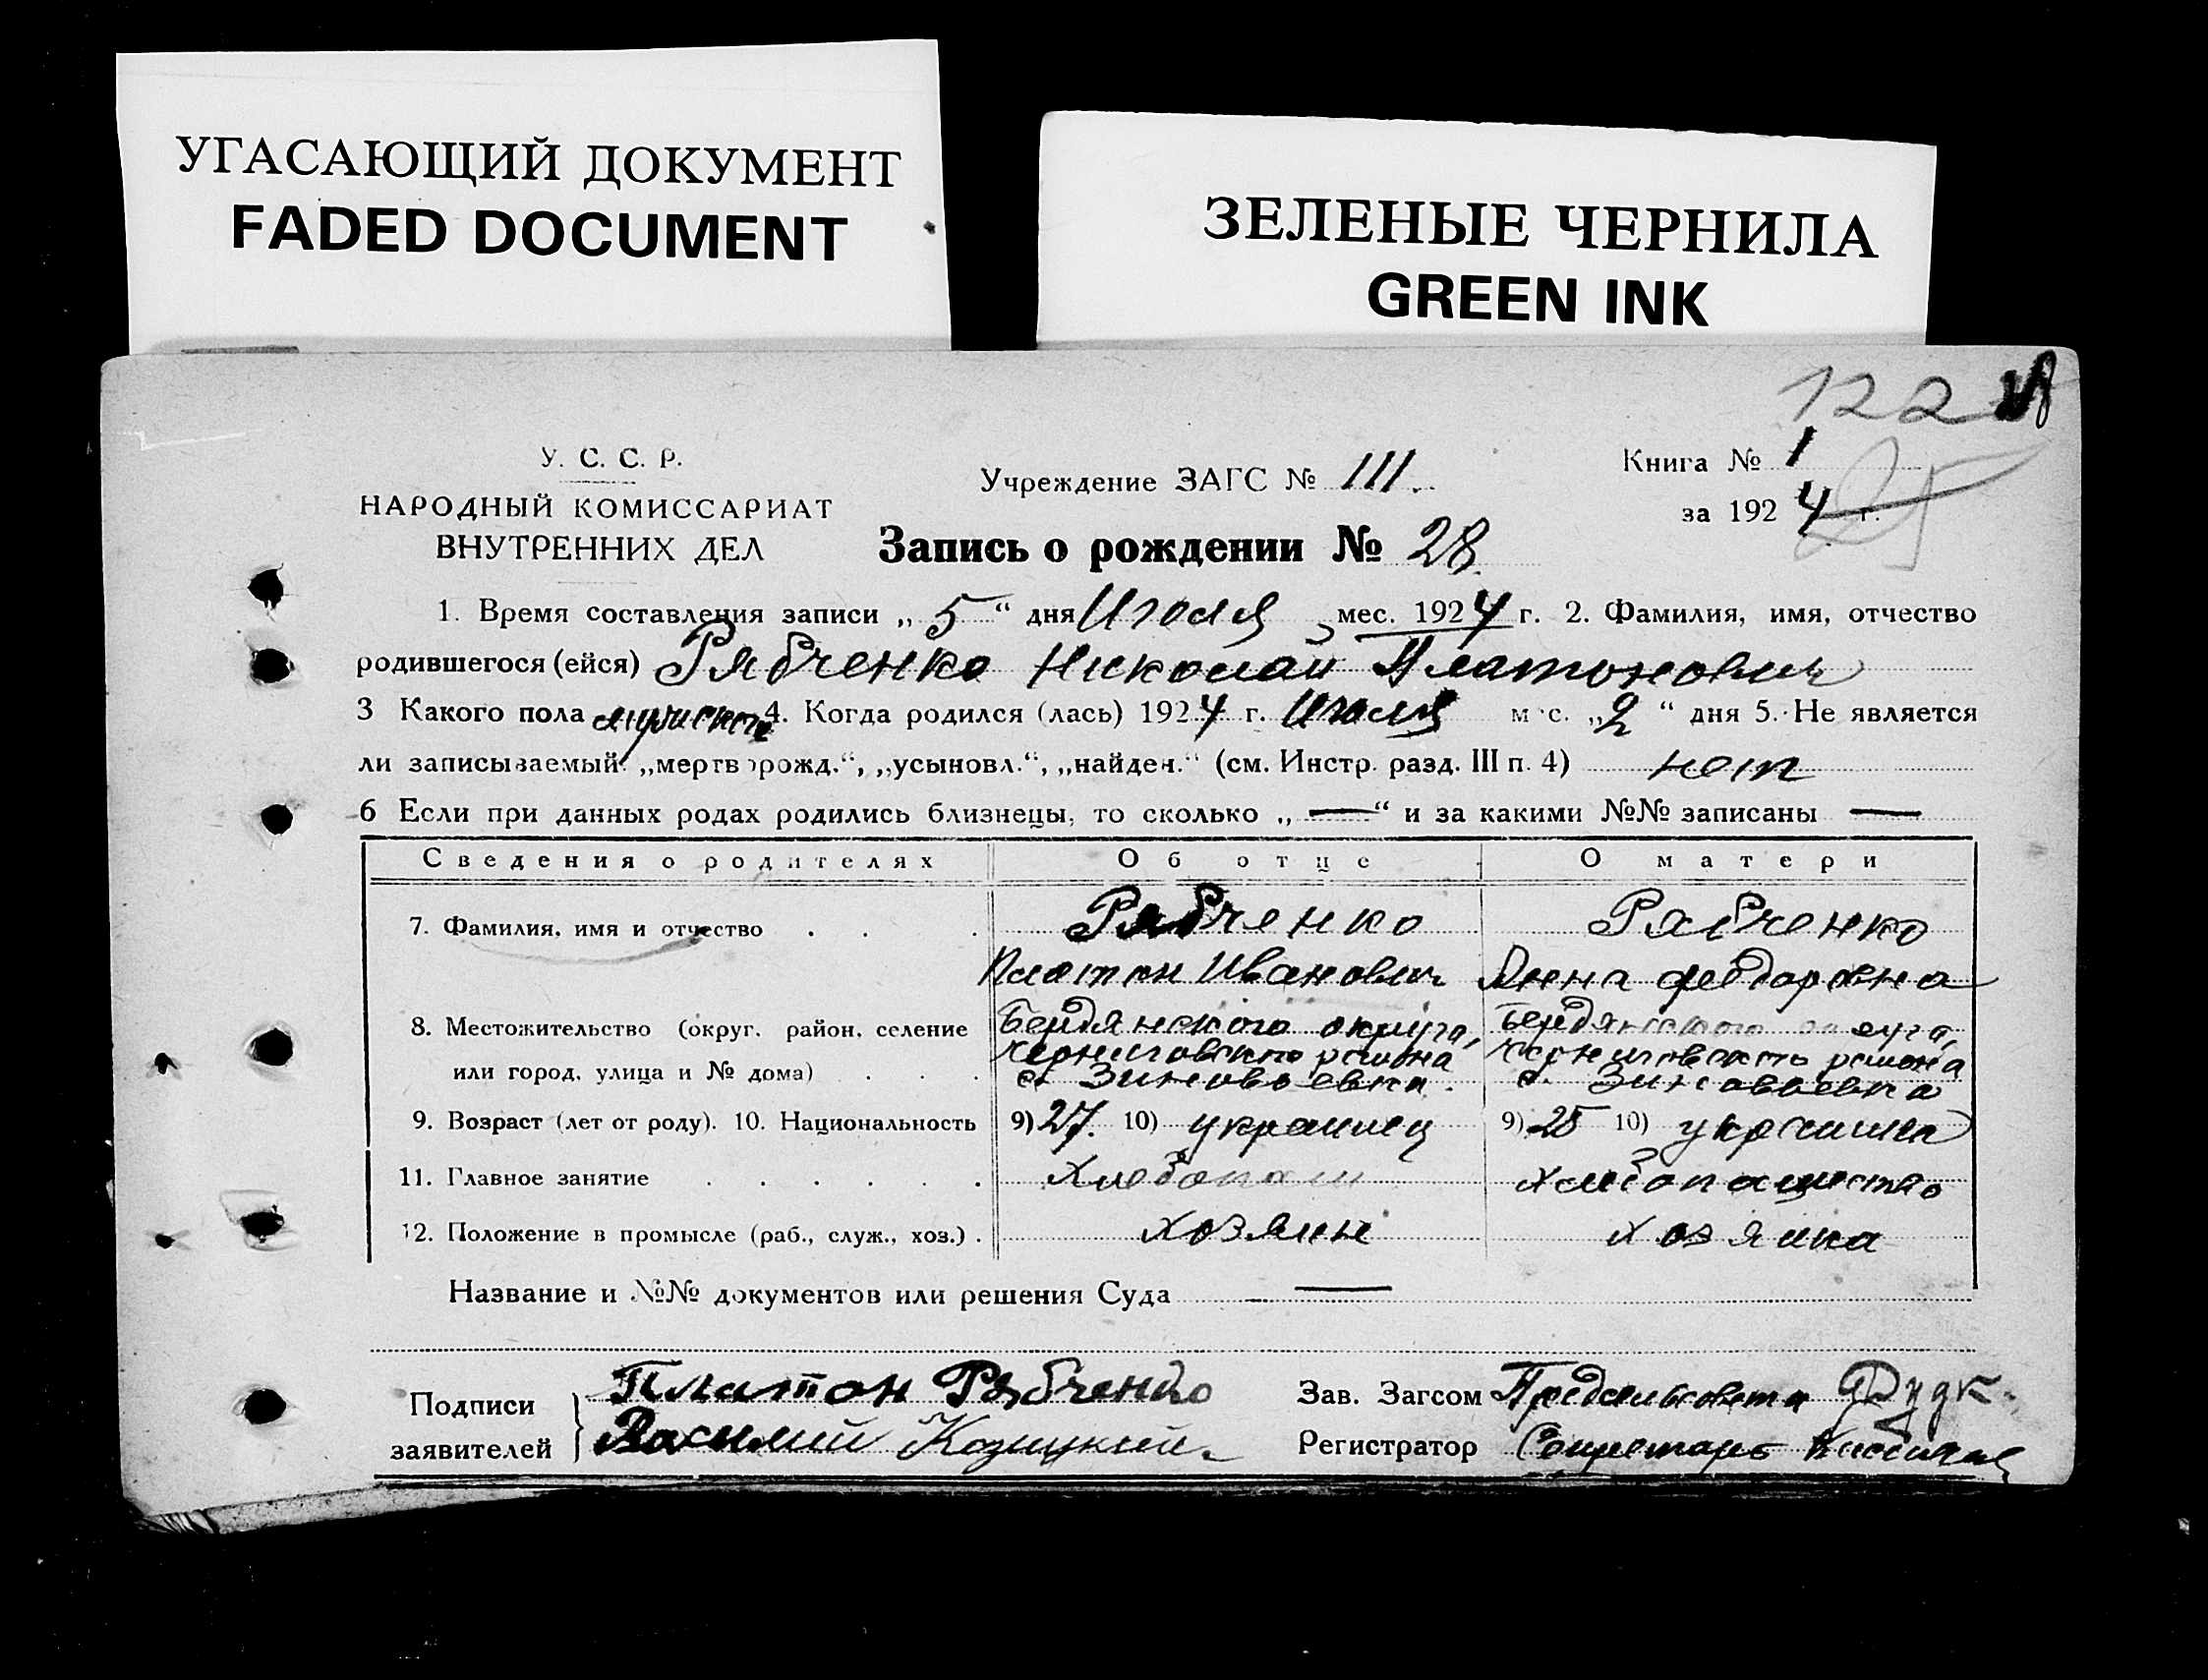 УГАСАЮЩИЙ ДОКУМЕНТ
FADED DOCUMENT
ЗЕЛЕНЫЕ ЧЕРНИЛА
GREEN INK
122
У. С. С. Р.
НАРОДНЫЙ КОМИССАРИАТ
ВНУТРЕННИХ ДЕЛ
Учреждение ЗАГС № 111.
Книга № 1
за 1924 г.
Запись о рождении № 28.
1. Время составления записи „5“ дня Июля мес. 1924 г. 2. Фамилия, имя, отчество
родившегося (ейся) Рябченко Николай Платонович
3 Какого пола мужского 4. Когда родился (лась) 1924 г. Июля мес. „2“ дня 5. Не является
ли записываемый „мертворожд.“, „усыновл.“, „найден.“ (см. Инстр. разд. III п. 4) нет
6 Если при данных родах родились близнецы, то сколько „—“ и за какими №№ записаны —
Сведения о родителях Об отце О матери
7. Фамилия, имя и отчество . . . Рябченко Рябченко
Платон Иванович Анна Федоровна
8. Местожительство (округ, район, селение Бердянского округа, Бердянского округа,
Черниговского района Черниговского района
или город, улица и № дома) . . . с. Зиновьевка. с. Зиновьевка
9. Возраст (лет от роду). 10. Национальность 9) 27. 10) украинец 9) 25 10) украинка
11. Главное занятие . . . . . . Хлебопаш хлебопашество
12. Положение в промысле (раб., служ., хоз.) . хозяин хозяика
Название и №№ документов или решения Суда —
Подписи
заявителей
Платон Рябченко
Василий Козицкий
Зав. Загсом Предсельсовета
Регистратор Секретарь